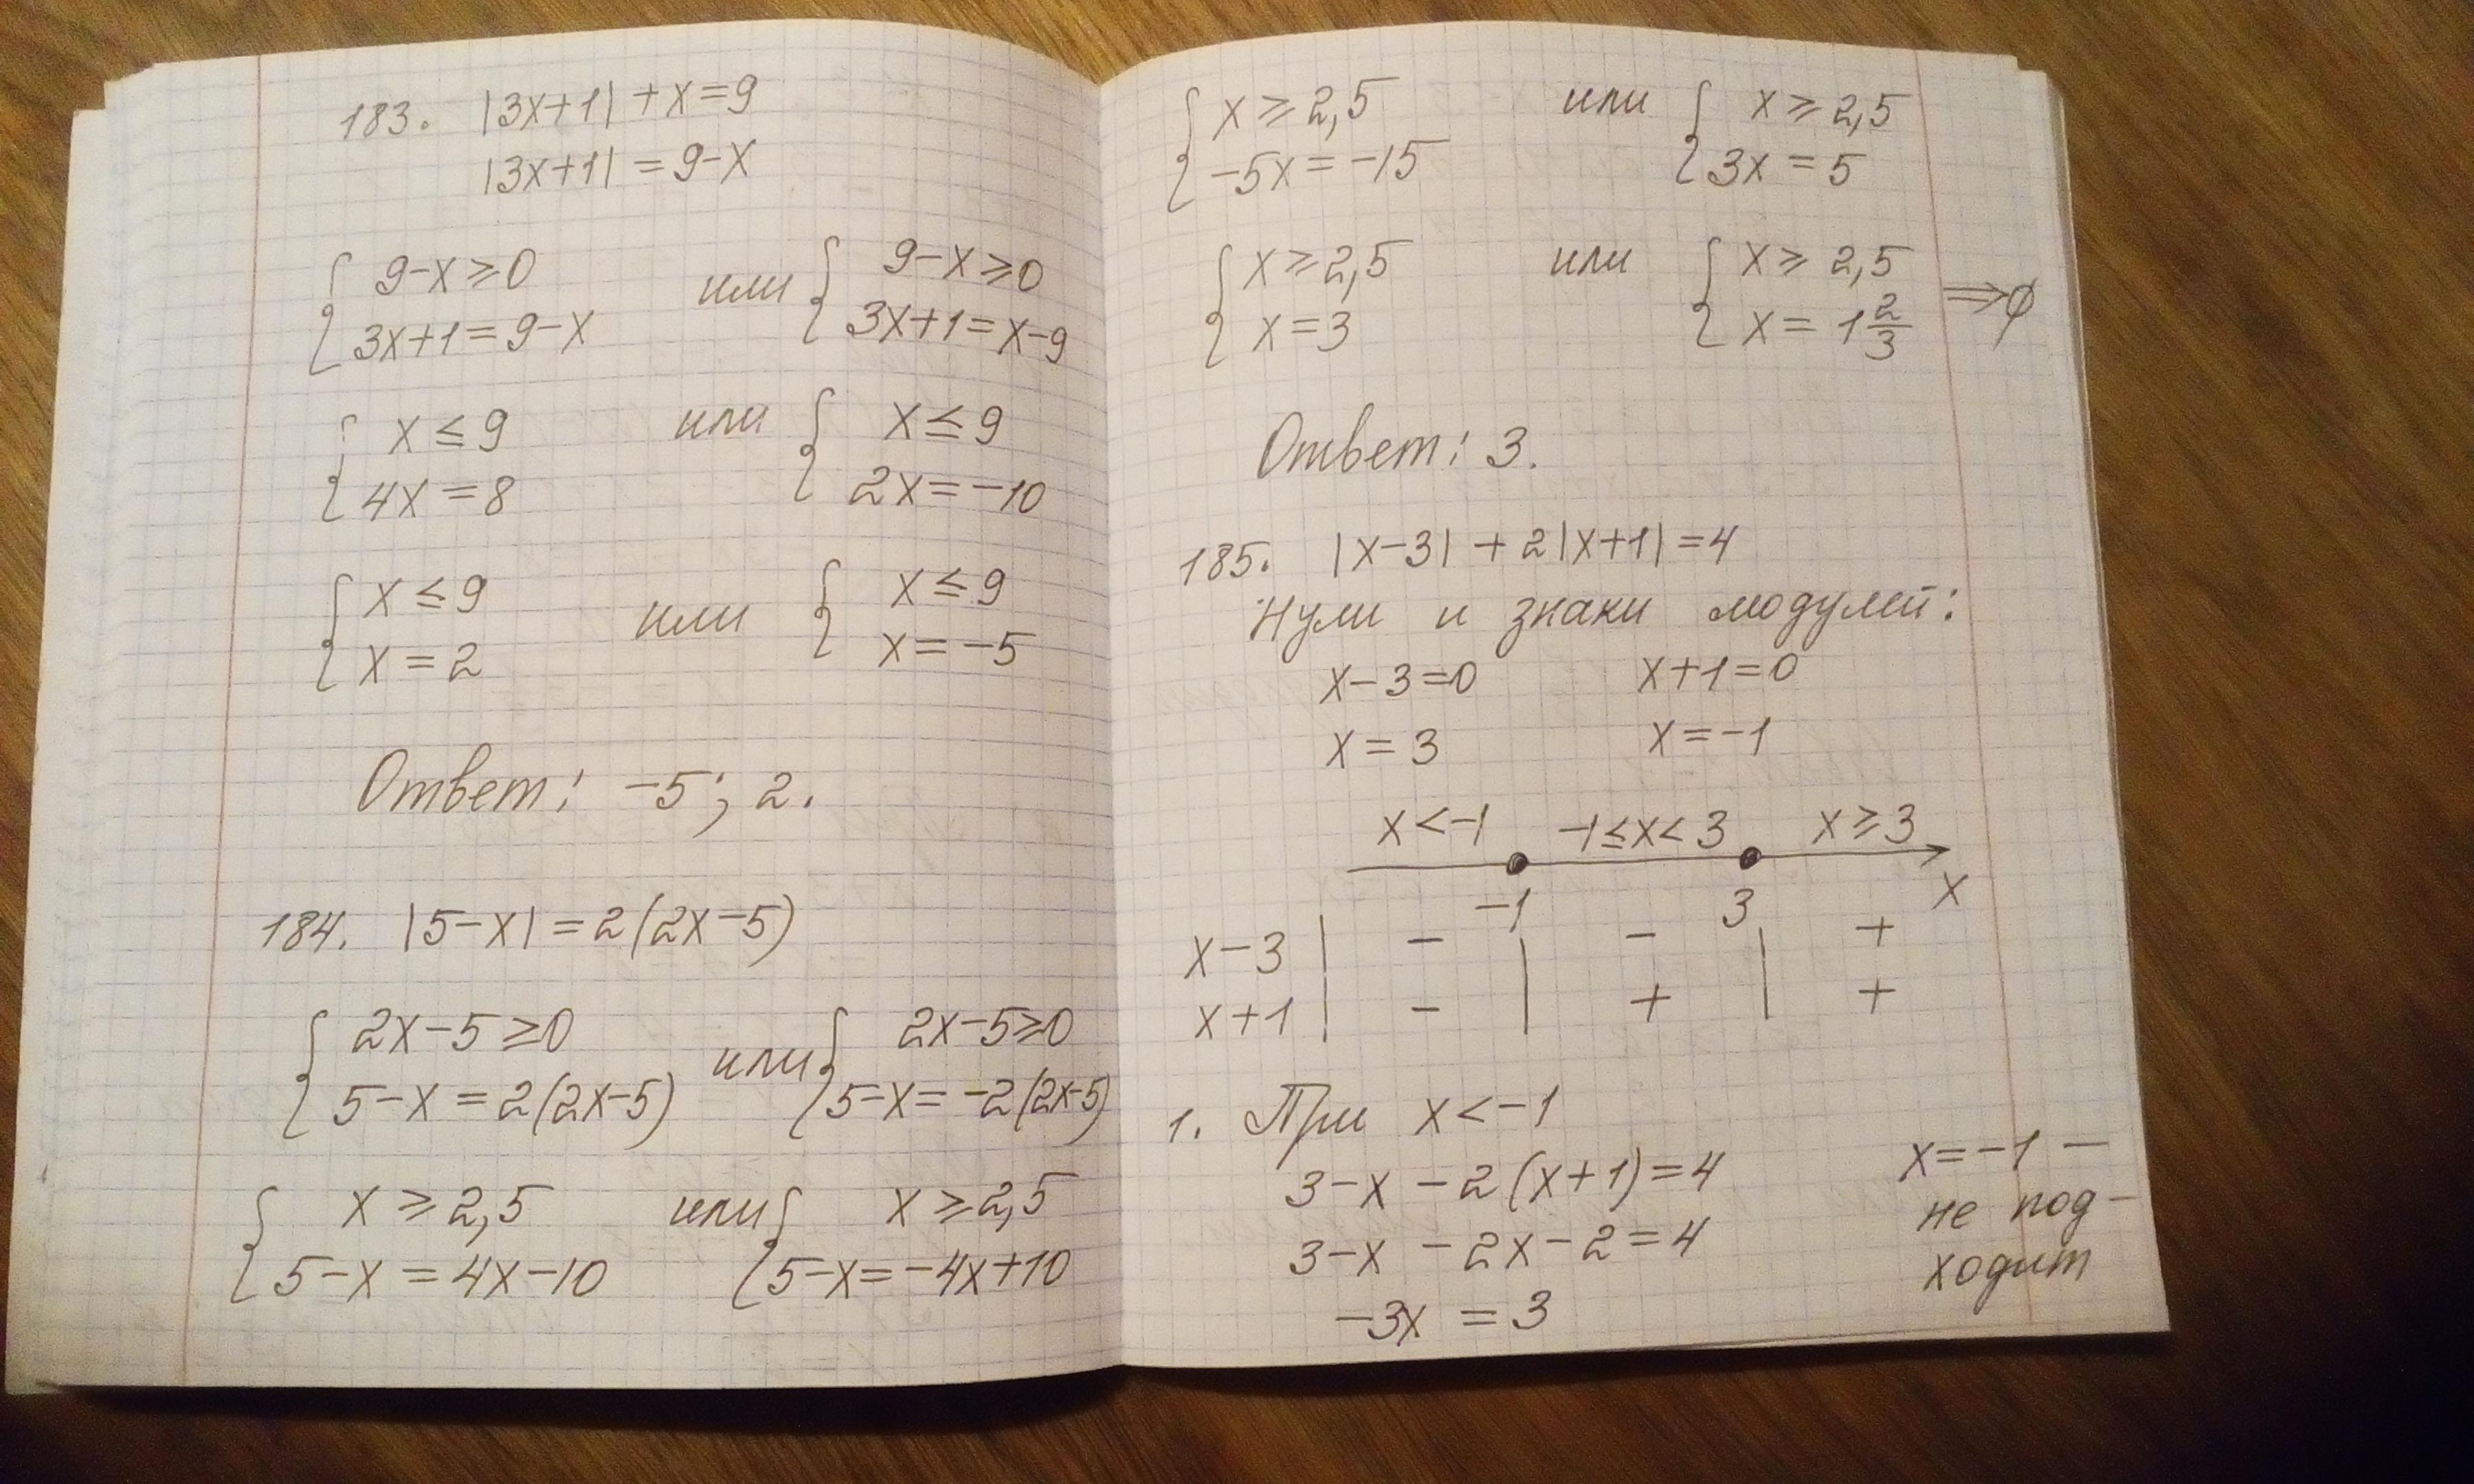 183. |3x+1|+x=9
|3x+1|=9-x
{ 9-x≥0 или { 9-x≥0
3x+1=9-x 3x+1=x-9
{ x≤9 или { x≤9
4x=8 2x=-10
{ x≤9 или { x≤9
x=2 x=-5
Ответ: -5; 2.
184. |5-x|=2(2x-5)
{ 2x-5≥0 или { 2x-5≥0
5-x=2(2x-5) 5-x=-2(2x-5)
{ x≥2,5 или { x≥2,5
5-x=4x-10 5-x=-4x+10
{ x≥2,5 или { x≥2,5
-5x=-15 3x=5
{ x≥2,5 или { x≥2,5
x=3 x=1 2/3 ⇒ ∅
Ответ: 3.
185. |x-3|+2|x+1|=4
Нули и знаки модулей:
x-3=0 x+1=0
x=3 x=-1
x<-1 -1≤x<3 x≥3
-1 3 x
x-3 | - | - | +
x+1 | - | + | +
1. При x<-1
3-x-2(x+1)=4
3-x-2x-2=4
-3x=3
x=-1 —
не под-
ходит